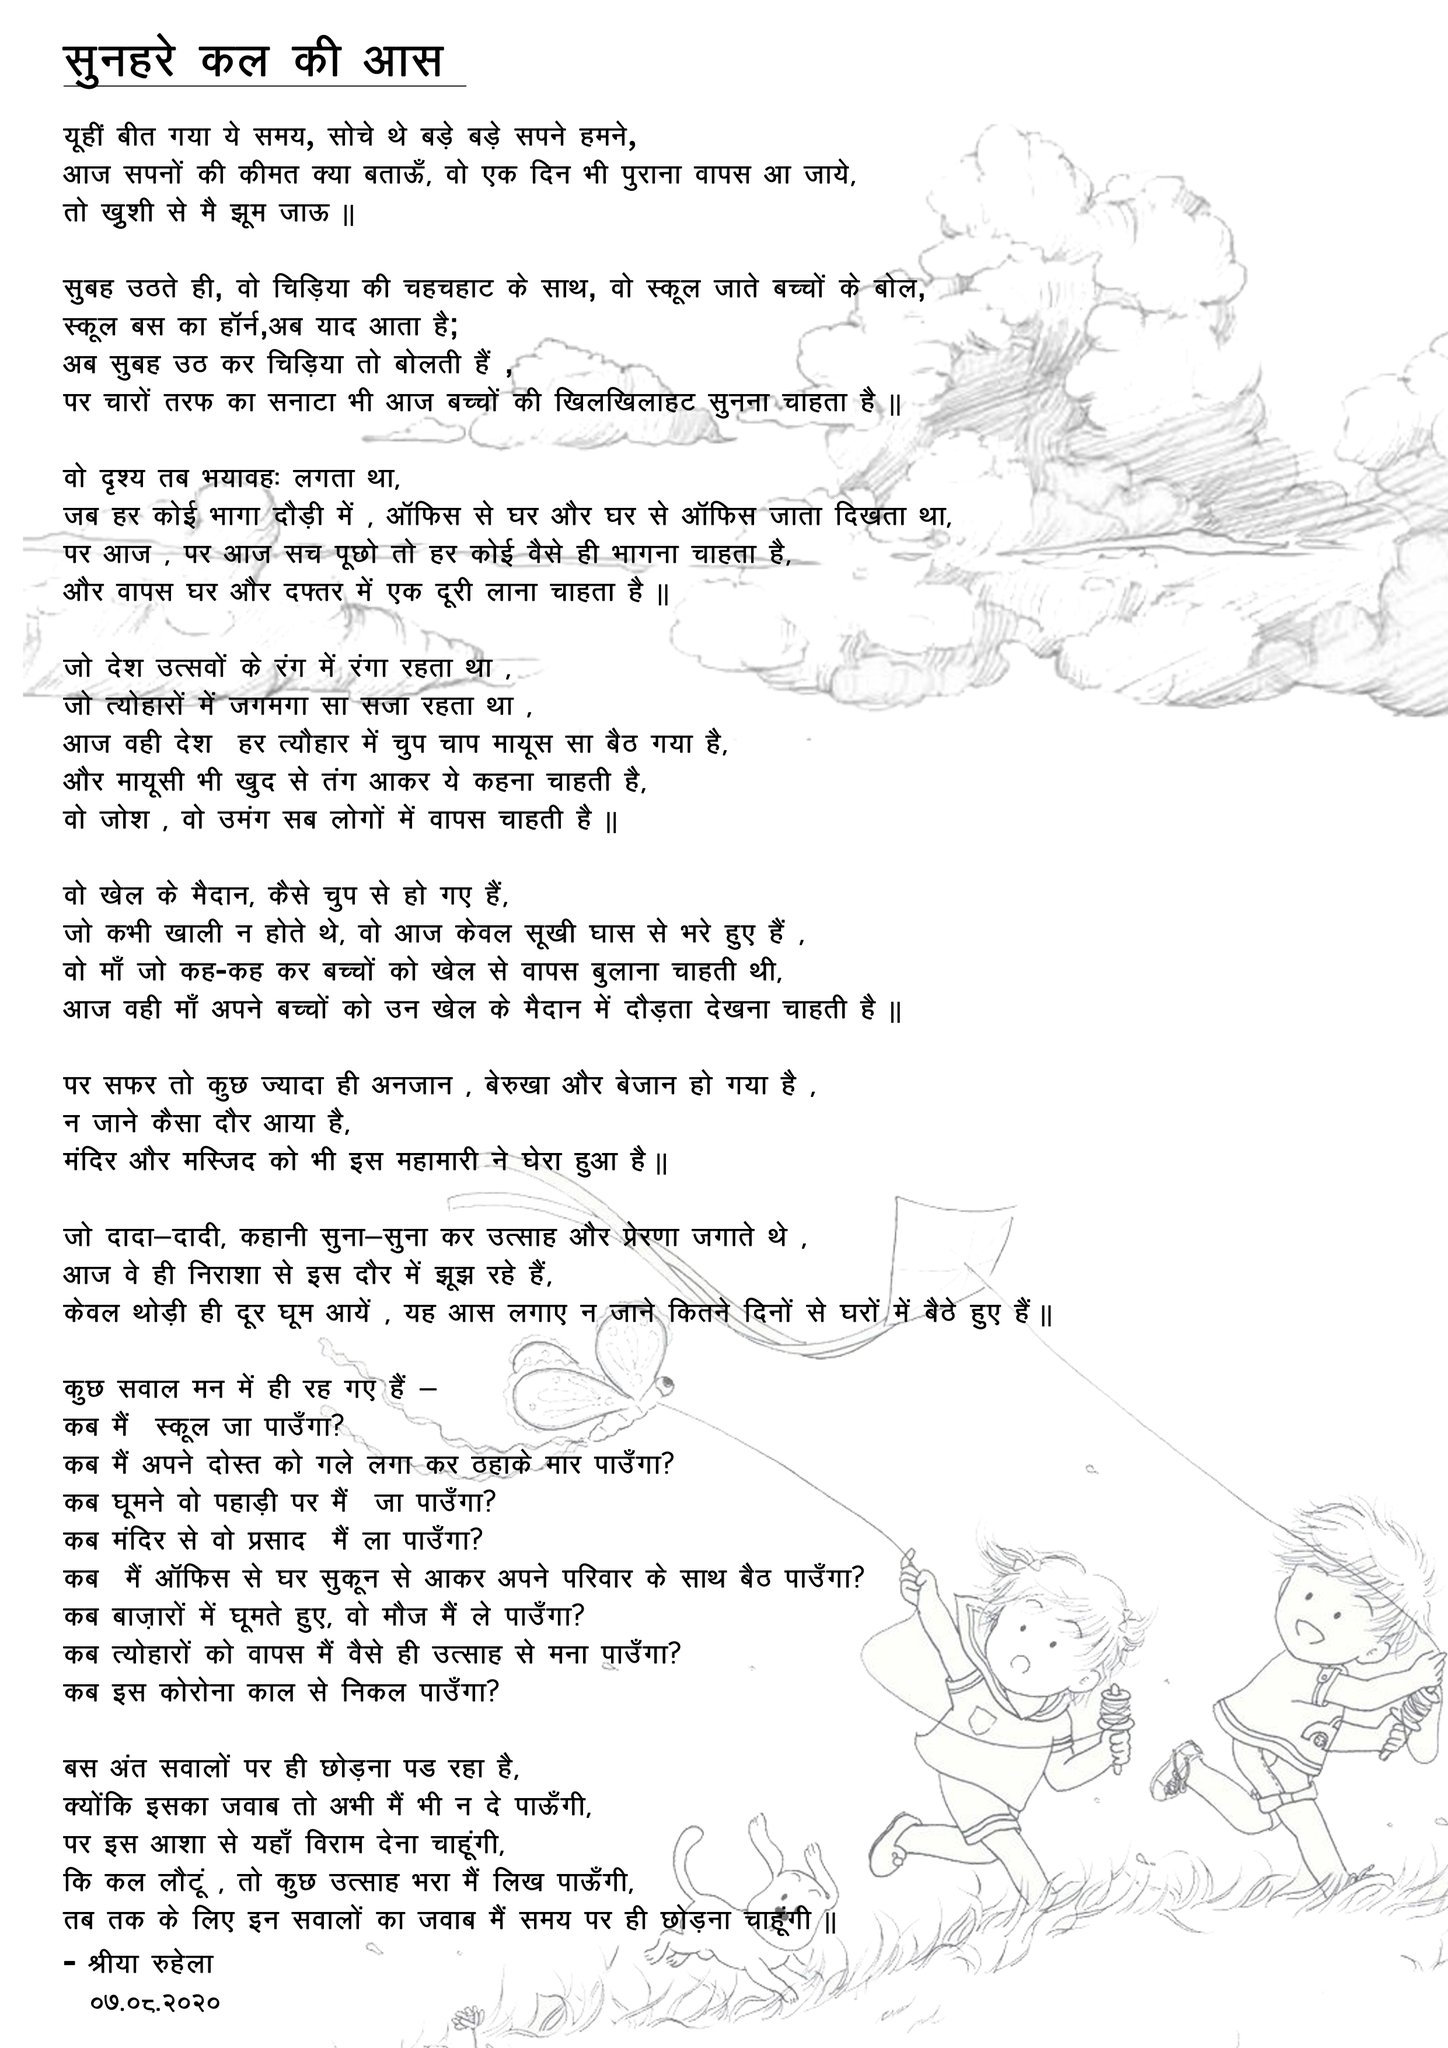 सुनहरे कल की आस
यूहीं बीत गया ये समय, सोचे थे बड़े बड़े सपने हमने,
आज सपनों की कीमत क्या बताऊँ, वो एक दिन भी पुराना वापस आ जाये,
तो खुशी से मै झूम जाऊ ॥
सुबह उठते ही, वो चिड़िया की चहचहाट के साथ, वो स्कूल जाते बच्चों के बोल,
स्कूल बस का हॉर्न,अब याद आता है;
अब सुबह उठ कर चिड़िया तो बोलती हैं ,
पर चारों तरफ का सनाटा भी आज बच्चों की खिलखिलाहट सुनना चाहता है ॥
वो दृश्य तब भयावहः लगता था,
जब हर कोई भागा दौड़ी में , ऑफिस से घर और घर से ऑफिस जाता दिखता था,
पर आज , पर आज सच पूछो तो हर कोई वैसे ही भागना चाहता है,
और वापस घर और दफ्तर में एक दूरी लाना चाहता है ॥
जो देश उत्सवों के रंग में रंगा रहता था ,
जो त्योहारों में जगमगा सा सजा रहता था ,
आज वही देश  हर त्यौहार में चुप चाप मायूस सा बैठ गया है,
और मायूसी भी खुद से तंग आकर ये कहना चाहती है,
वो जोश , वो उमंग सब लोगों में वापस चाहती है ॥
वो खेल के मैदान, कैसे चुप से हो गए हैं,
जो कभी खाली न होते थे, वो आज केवल सूखी घास से भरे हुए हैं ,
वो माँ जो कह-कह कर बच्चों को खेल से वापस बुलाना चाहती थी,
आज वही माँ अपने बच्चों को उन खेल के मैदान में दौड़ता देखना चाहती है ॥
पर सफर तो कुछ ज्यादा ही अनजान , बेरुखा और बेजान हो गया है ,
न जाने कैसा दौर आया है,
मंदिर और मस्जिद को भी इस महामारी ने घेरा हुआ है॥
जो दादा–दादी, कहानी सुना–सुना कर उत्साह और प्रेरणा जगाते थे ,
आज वे ही निराशा से इस दौर में झूझ रहे हैं,
केवल थोड़ी ही दूर घूम आयें , यह आस लगाए न जाने कितने दिनों से घरों में बैठे हुए हैं॥
कुछ सवाल मन में ही रह गए हैं –
कब मैं  स्कूल जा पाउँगा?
कब मैं अपने दोस्त को गले लगा कर ठहाके मार पाउँगा?
कब घूमने वो पहाड़ी पर मैं  जा पाउँगा?
कब मंदिर से वो प्रसाद  मैं ला पाउँगा?
कब  मैं ऑफिस से घर सुकून से आकर अपने परिवार के साथ बैठ पाउँगा?
कब बाज़ारों में घूमते हुए, वो मौज मैं ले पाउँगा?
कब त्योहारों को वापस मैं वैसे ही उत्साह से मना पाउँगा?
कब इस कोरोना काल से निकल पाउँगा?
बस अंत सवालों पर ही छोड़ना पड रहा है,
क्योंकि इसका जवाब तो अभी मैं भी न दे पाऊँगी,
पर इस आशा से यहाँ विराम देना चाहूंगी,
कि कल लौटूं , तो कुछ उत्साह भरा मैं लिख पाऊँगी,
तब तक के लिए इन सवालों का जवाब मैं समय पर ही छोड़ना चाहूंगी ॥
- श्रीया रुहेला
०७.०८.२०२०